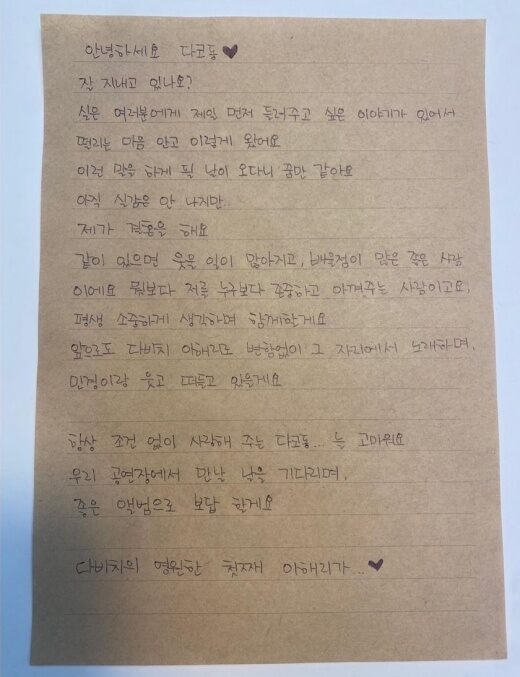 안녕하세요 다코동♥
잘 지내고 있나요?
실은 여러분에게 제일 먼저 들려주고 싶은 이야기가 있어서
떨리는 마음 안고 이렇게 왔어요
이런 말을 하게 될 날이 오다니 꿈만 같아요
아직 실감은 안 나지만..
제가 결혼을 해요
같이 있으면 웃을 일이 많아지고, 배울점이 많은 좋은 사람
이에요 뭐보다 저를 누구보다 존중하고 아껴주는 사람이고요,
평생 소중하게 생각하며 함께할게요
앞으로도 다비치 이해리도 변함없이 그 자리에서 노래하며,
민경이랑 웃고 떠들고 있을게요
항상 조건 없이 사랑해 주는 다코동... 늘 고마워요
우리 공연장에서 만날 날을 기다리며,
좋은 앨범으로 보답 할게요
다비치의 영원한 첫째 이해리가...♥